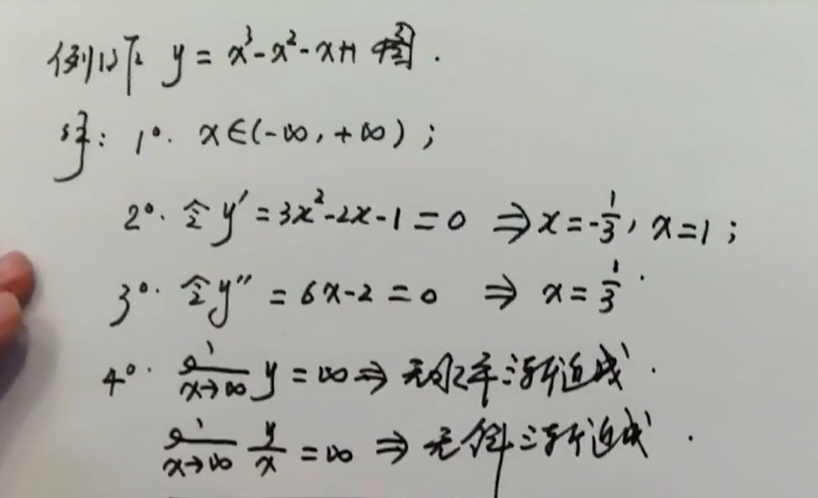 例1) 作 y = x³-x²-x+1 图.
解: 1°. x∈(-∞, +∞);
2°. 令 y′ = 3x²-2x-1 = 0 ⇒ x = -1/3, x = 1;
3°. 令 y″ = 6x-2 = 0 ⇒ x = 1/3.
4°. lim x→∞ y = ∞ ⇒ 无水平渐近线.
lim x→∞ y/x = ∞ ⇒ 无斜渐近线.